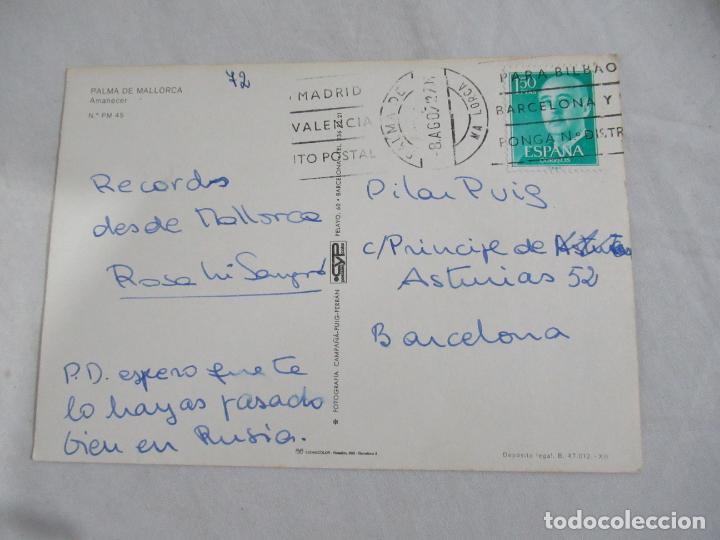 72
PALMA DE MALLORCA
Amanecer
N.º PM 45
MADRID
VALENCIA
ITO POSTAL
PALMA DE
MALLORCA
-8 AGO 72
PARA BILBAO
BARCELONA Y
PONGA N.º DISTR
1'50
ESPAÑA
CORREOS
Recordos
desde Mallorca
Rosa Mi
P.D. espero que te
lo hayas pasado
bien en Rusia.
Pilar Puig
c/Principe de Asturias
Asturias 52
Barcelona
* FOTOGRAFIA CAMPAÑÁ-PUIG-FERRÁN
CYP
PELAYO, 62 • BARCELONA TEL.
Depósito legal. B. 47.012.-XII
todocoleccion.net